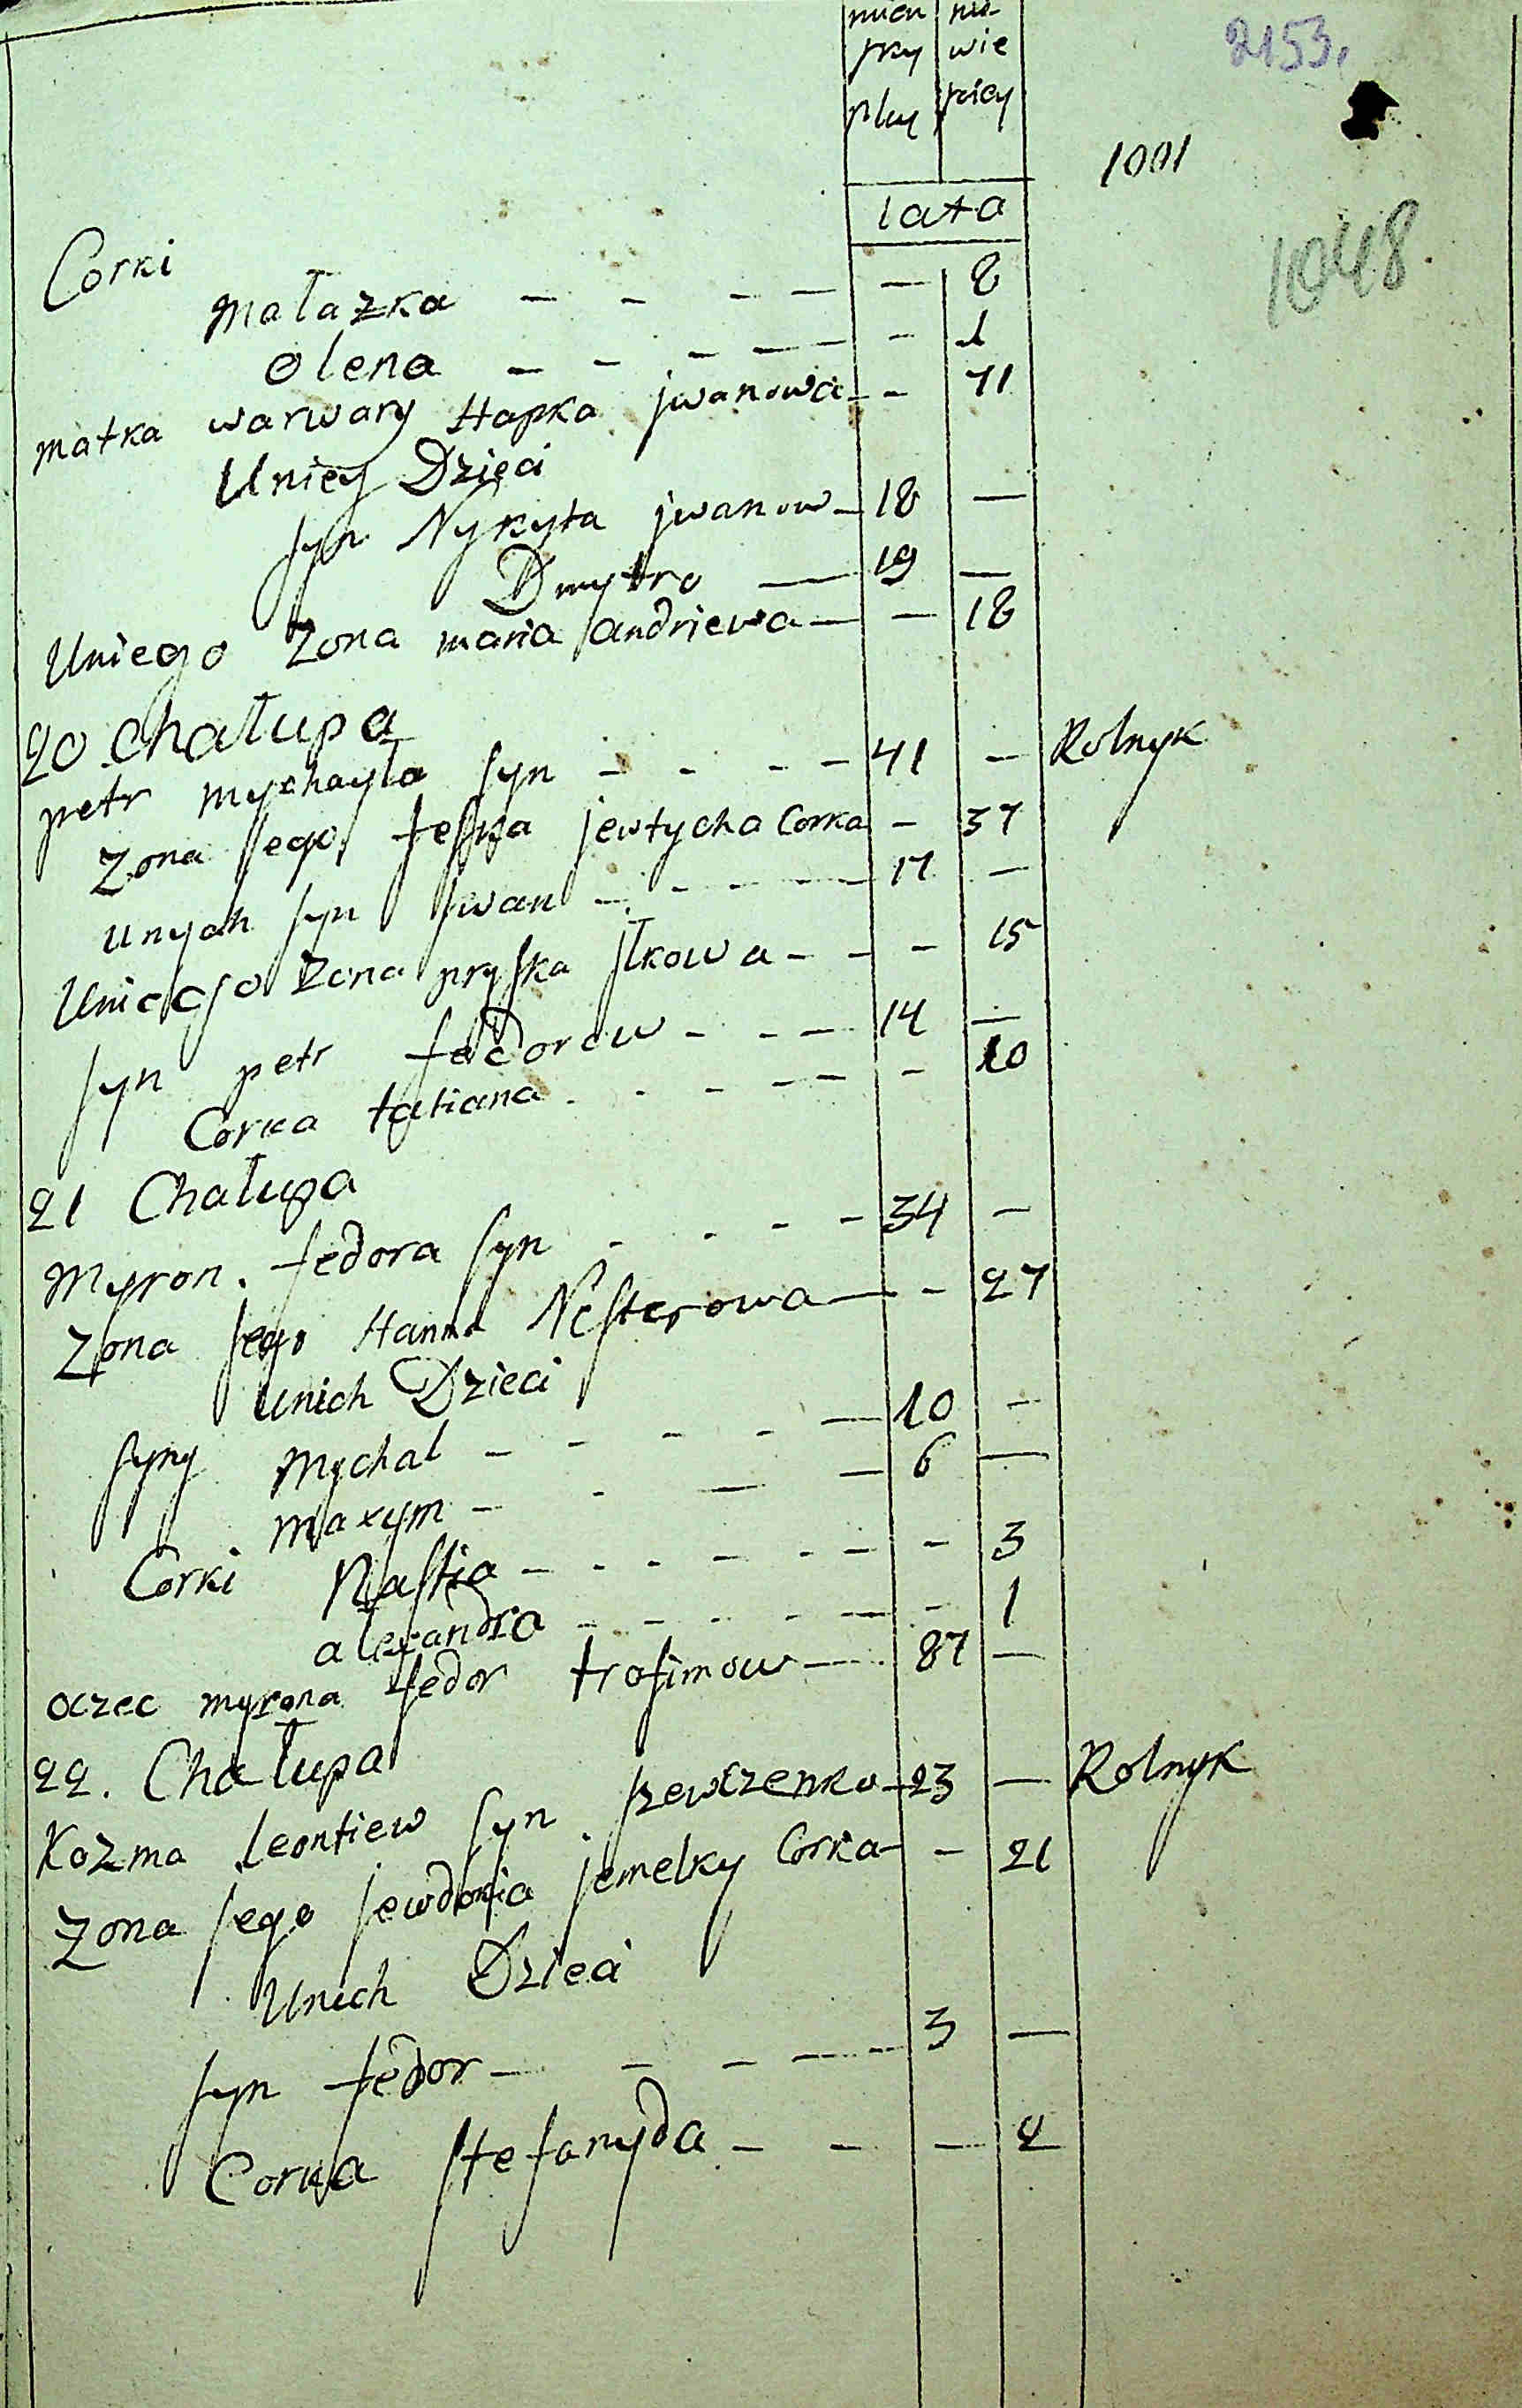 mien nie-
przy wie
płcy przicy
2153.
1001
lata
1048
Corki
małazka - - - - - 8
olena - - - - - - 1
matka warwary Hapka jwanowa - - 41
Uniey Dzieci
syn Nykyta jwanow - 18 -
Dmytro - 19 -
Uniego Zona maria andriewa - - 18
20 chałupa
petr mychayła syn - - - - 41 - Rolnyk
Zona jego feska jewtycha Corka - 37
unych syn jwan - - - - 17 -
Uniego Zona pryska jłkowa - - - 15
syn petr fedorow - - - 14 -
Corka tatiana - - - - - 10
21 Chałupa
Myron. fedora syn - - - - 34 -
Zona jego Hanna Nesterowa - - 27
unich Dzieci
syny Mychal - - - - - 10 -
maxym - - - - 6 -
Corki Nastia - - - - - - - 3
alexandra - - - - - - 1
oczec myrona fedor trofimow - 87 -
22. Chałupa
Kozma leontiew syn szewczenko - 23 - Rolnyk
Zona jego jewdokia jemelky Corka - - 21
Unich Dzieci
syn fedor - - - - - 3 -
Corka stefanyda - - - 2